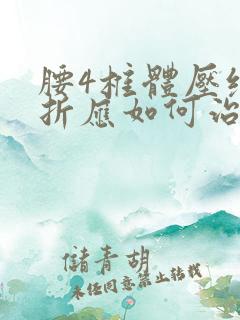 腰4椎體壓
折應如何治
儲青胡
未经同意禁止转载